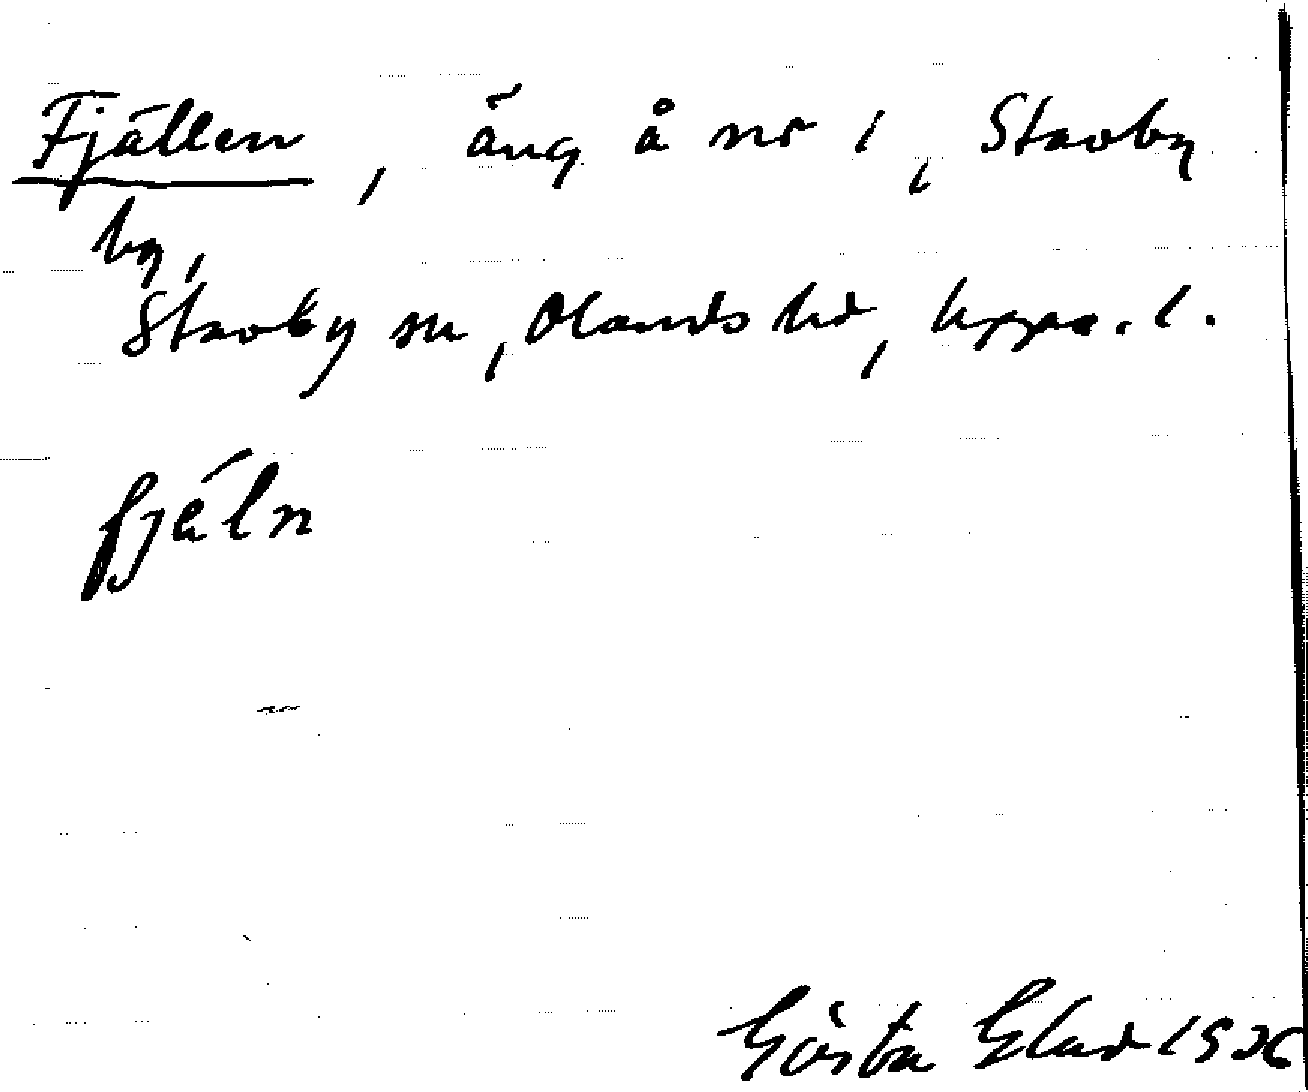 Fjällen, äng å nr 1, Stavby
by,
Stavby sn, Olands hd, Upps. l.
fjäln
Gösta Glad 1926